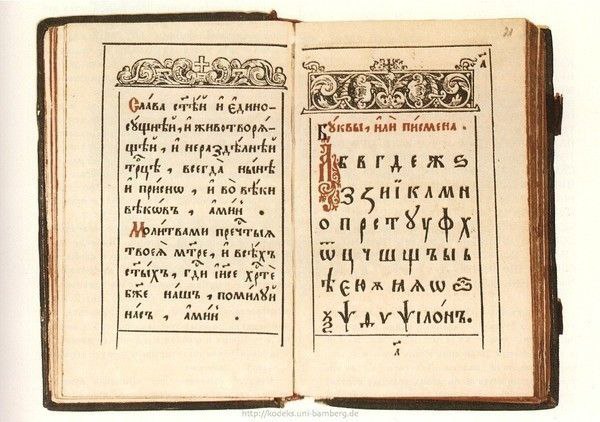 Слава ст҃ѣй и едино-
сущнѣй, и животворѧ-
щей, и нераздѣлнѣй
трⷪ҇цѣ, всегда нынѣ
и приснѡ, и во вѣки
вѣкѡвъ, аминь .
Молитвами преч҇тыѧ
твоеѧ мт҃ре, и всѣхъ
ст҃ыхъ, гд҇и іи҃се хр҇те
бж҃е нашъ, помилуй
насъ, аминь .
21
Буквы, или писмена .
А Б В Г Д Е Ж Ѕ
З Ꙁ И Ї К Л М Н
О П Р С Т Ꙋ У Ф Х
Ѿ Ц Ч Ш Щ Ъ Ы Ь
Ѣ Є Ю Ѫ Ꙗ Ѧ Ѡ
Ѯ Ѱ Д Ѵ Ѱілонъ.
http://kodeks.uni-bamberg.de